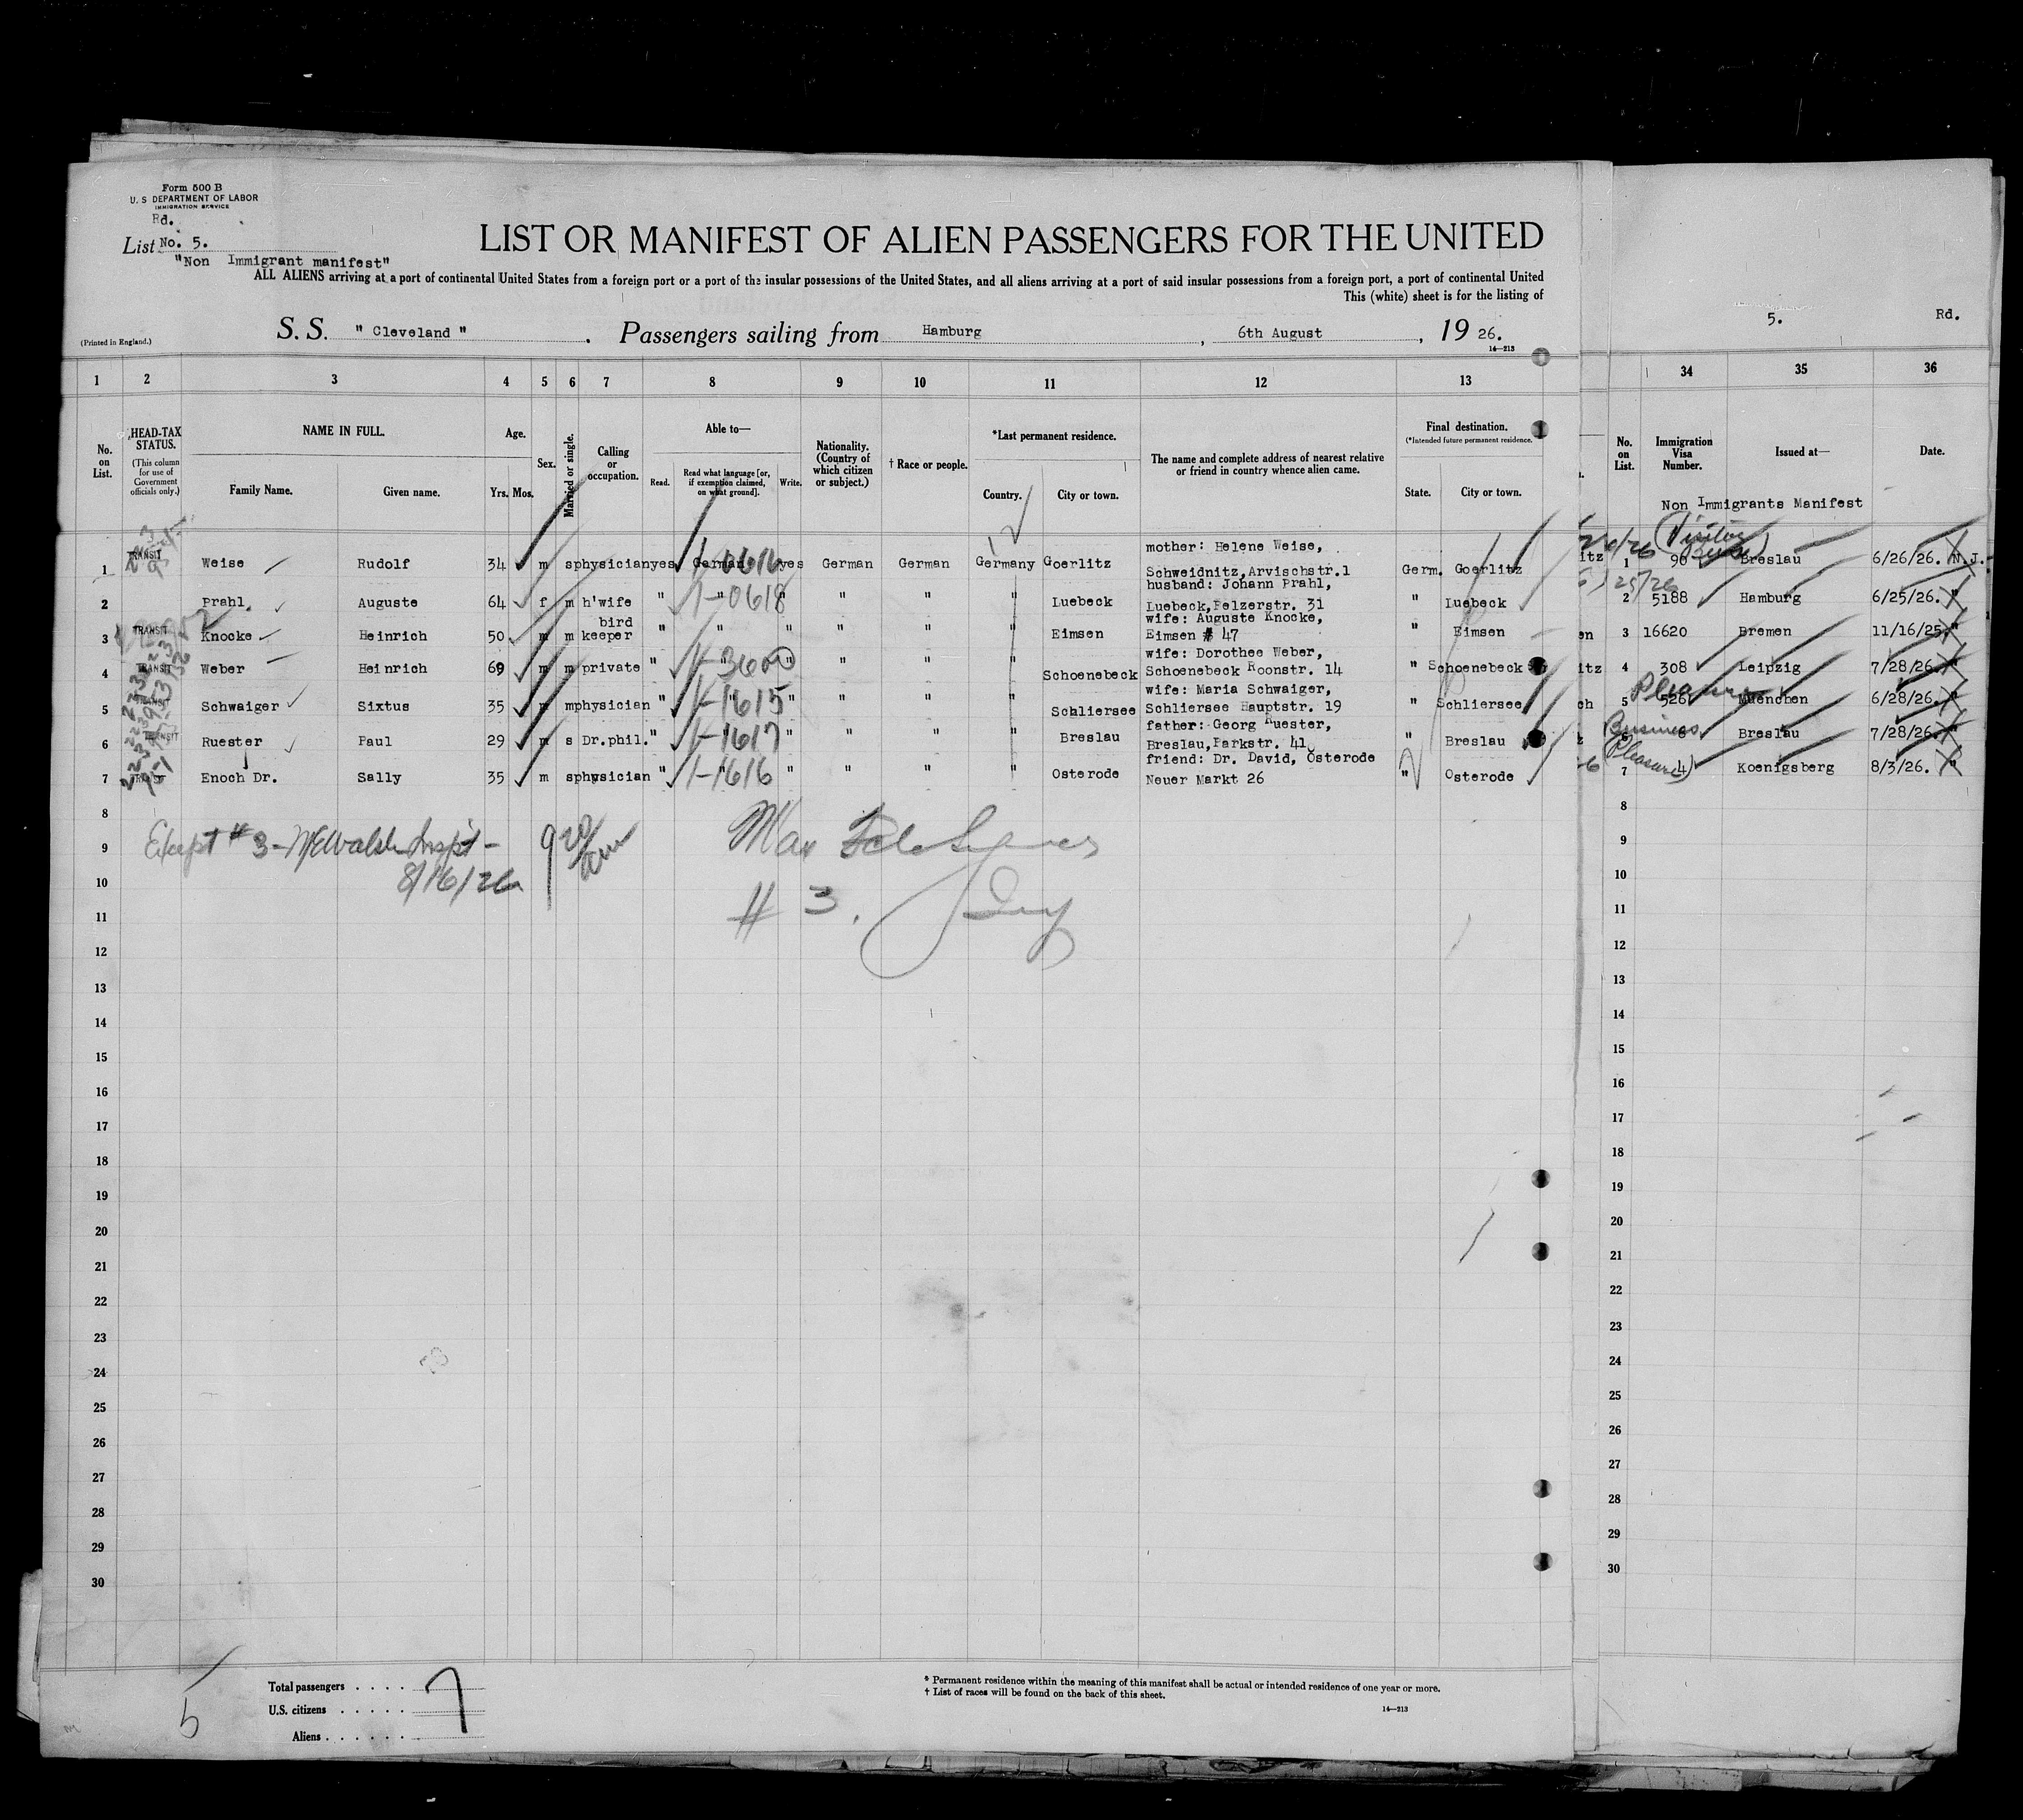 Form 500 B
U. S DEPARTMENT OF LABOR
IMMIGRATION SERVICE
Rd.
List No. 5.
"Non Immigrant manifest"
LIST OR MANIFEST OF ALIEN PASSENGERS FOR THE UNITED
ALL ALIENS arriving at a port of continental United States from a foreign port or a port of the insular possessions of the United States, and all aliens arriving at a port of said insular possessions from a foreign port, a port of continental United
This (white) sheet is for the listing of
(Printed in England.)
S. S. " Cleveland " . Passengers sailing from Hamburg , 6th August , 19 26.
14—213
5. Rd.
1 2 3 4 5 6 7 8 9 10 11 12 13 34 35 36
No. on List.
HEAD-TAX STATUS.
(This column for use of Government officials only.)
NAME IN FULL.
Family Name. Given name.
Age.
Yrs. Mos.
Sex.
Married or single.
Calling or occupation.
Able to—
Read. Read what language [or, if exemption claimed, on what ground]. Write.
Nationality. (Country of which citizen or subject.)
† Race or people.
*Last permanent residence.
Country. City or town.
The name and complete address of nearest relative or friend in country whence alien came.
Final destination.
(*Intended future permanent residence.
State. City or town.
No. on List.
Immigration Visa Number.
Issued at—
Date.
Non Immigrants Manifest
1 TRANSIT Weise Rudolf 34 m s physician yes German yes German German Germany Goerlitz mother: Helene Weise, Schweidnitz,Arvischstr.1 Germ. Goerlitz 1 90 Breslau 6/26/26. N.J.
2 Prahl. Auguste 64 f m h'wife " 1-0618 " " " " Luebeck husband: Johann Prahl, Luebeck,Pelzerstr. 31 " Luebeck 2 5188 Hamburg 6/25/26. "
3 TRANSIT Knocke Heinrich 50 m m bird keeper " " " " " " Eimsen wife: Auguste Knocke, Eimsen # 47 " Eimsen 3 16620 Bremen 11/16/25. "
4 TRANSIT Weber Heinrich 69 m m private " " " " " Schoenebeck wife: Dorothee Weber, Schoenebeck Roonstr. 14 " Schoenebeck 4 308 Leipzig 7/28/26. "
5 TRANSIT Schwaiger Sixtus 35 m m physician " 1-1615 " " " " Schliersee wife: Maria Schwaiger, Schliersee Hauptstr. 19 " Schliersee 5 526 Muenchen 6/28/26. "
6 TRANSIT Ruester Paul 29 m s Dr.phil. " 1-1617 " " " " Breslau father: Georg Ruester, Breslau,Parkstr. 41 " Breslau 6 Breslau 7/28/26. "
7 TRANSIT Enoch Dr. Sally 35 m s physician " 1-1616 " " " " Osterode friend: Dr. David, Osterode Neuer Markt 26 " Osterode 7 4 Koenigsberg 8/3/26. "
(Visitor
Pleasure
Business
(Pleasure)
8 8
9 9
10 10
11 11
12 12
13 13
14 14
15 15
16 16
17 17
18 18
19 19
20 20
21 21
22 22
23 23
24 24
25 25
26 26
27 27
28 28
29 29
30 30
Except # 3 -
8/16/26
Max
# 3.
Total passengers . . . . 7
U.S. citizens . . . . .
Aliens . . . . . .
5
* Permanent residence within the meaning of this manifest shall be actual or intended residence of one year or more.
† List of races will be found on the back of this sheet.
14—213